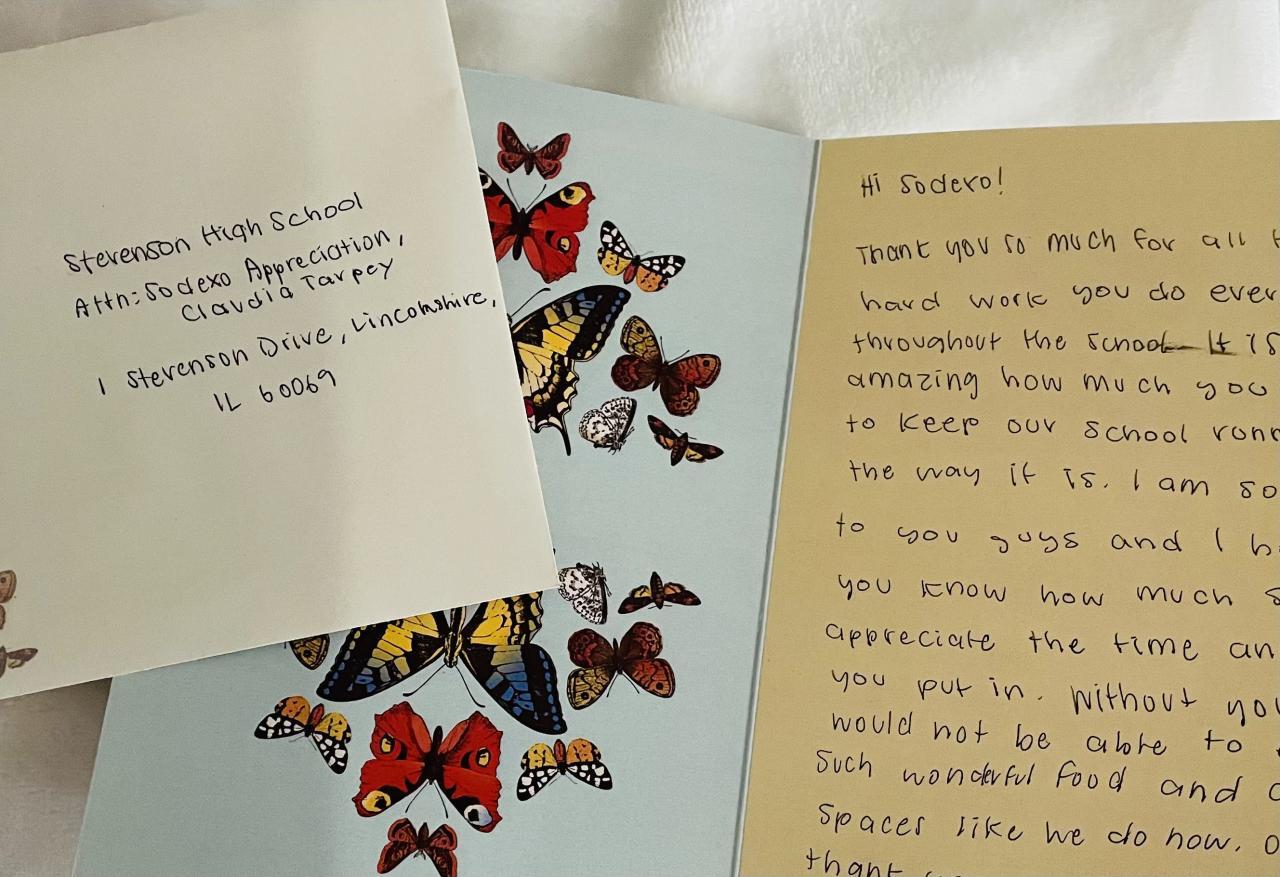 Stevenson High School
Attn: Sodexo Appreciation,
Claudia Tarpey
1 Stevenson Drive, Lincolnshire,
IL 60069
Hi Sodexo!
Thank you so much for all
hard work you do
throughout the school It is
amazing how much you
to keep our school
the way it is. I am so
to you guys and I
you know how much
appreciate the time
you put in. Without
would not be able to
such wonderful food and
spaces like we do now.
thank